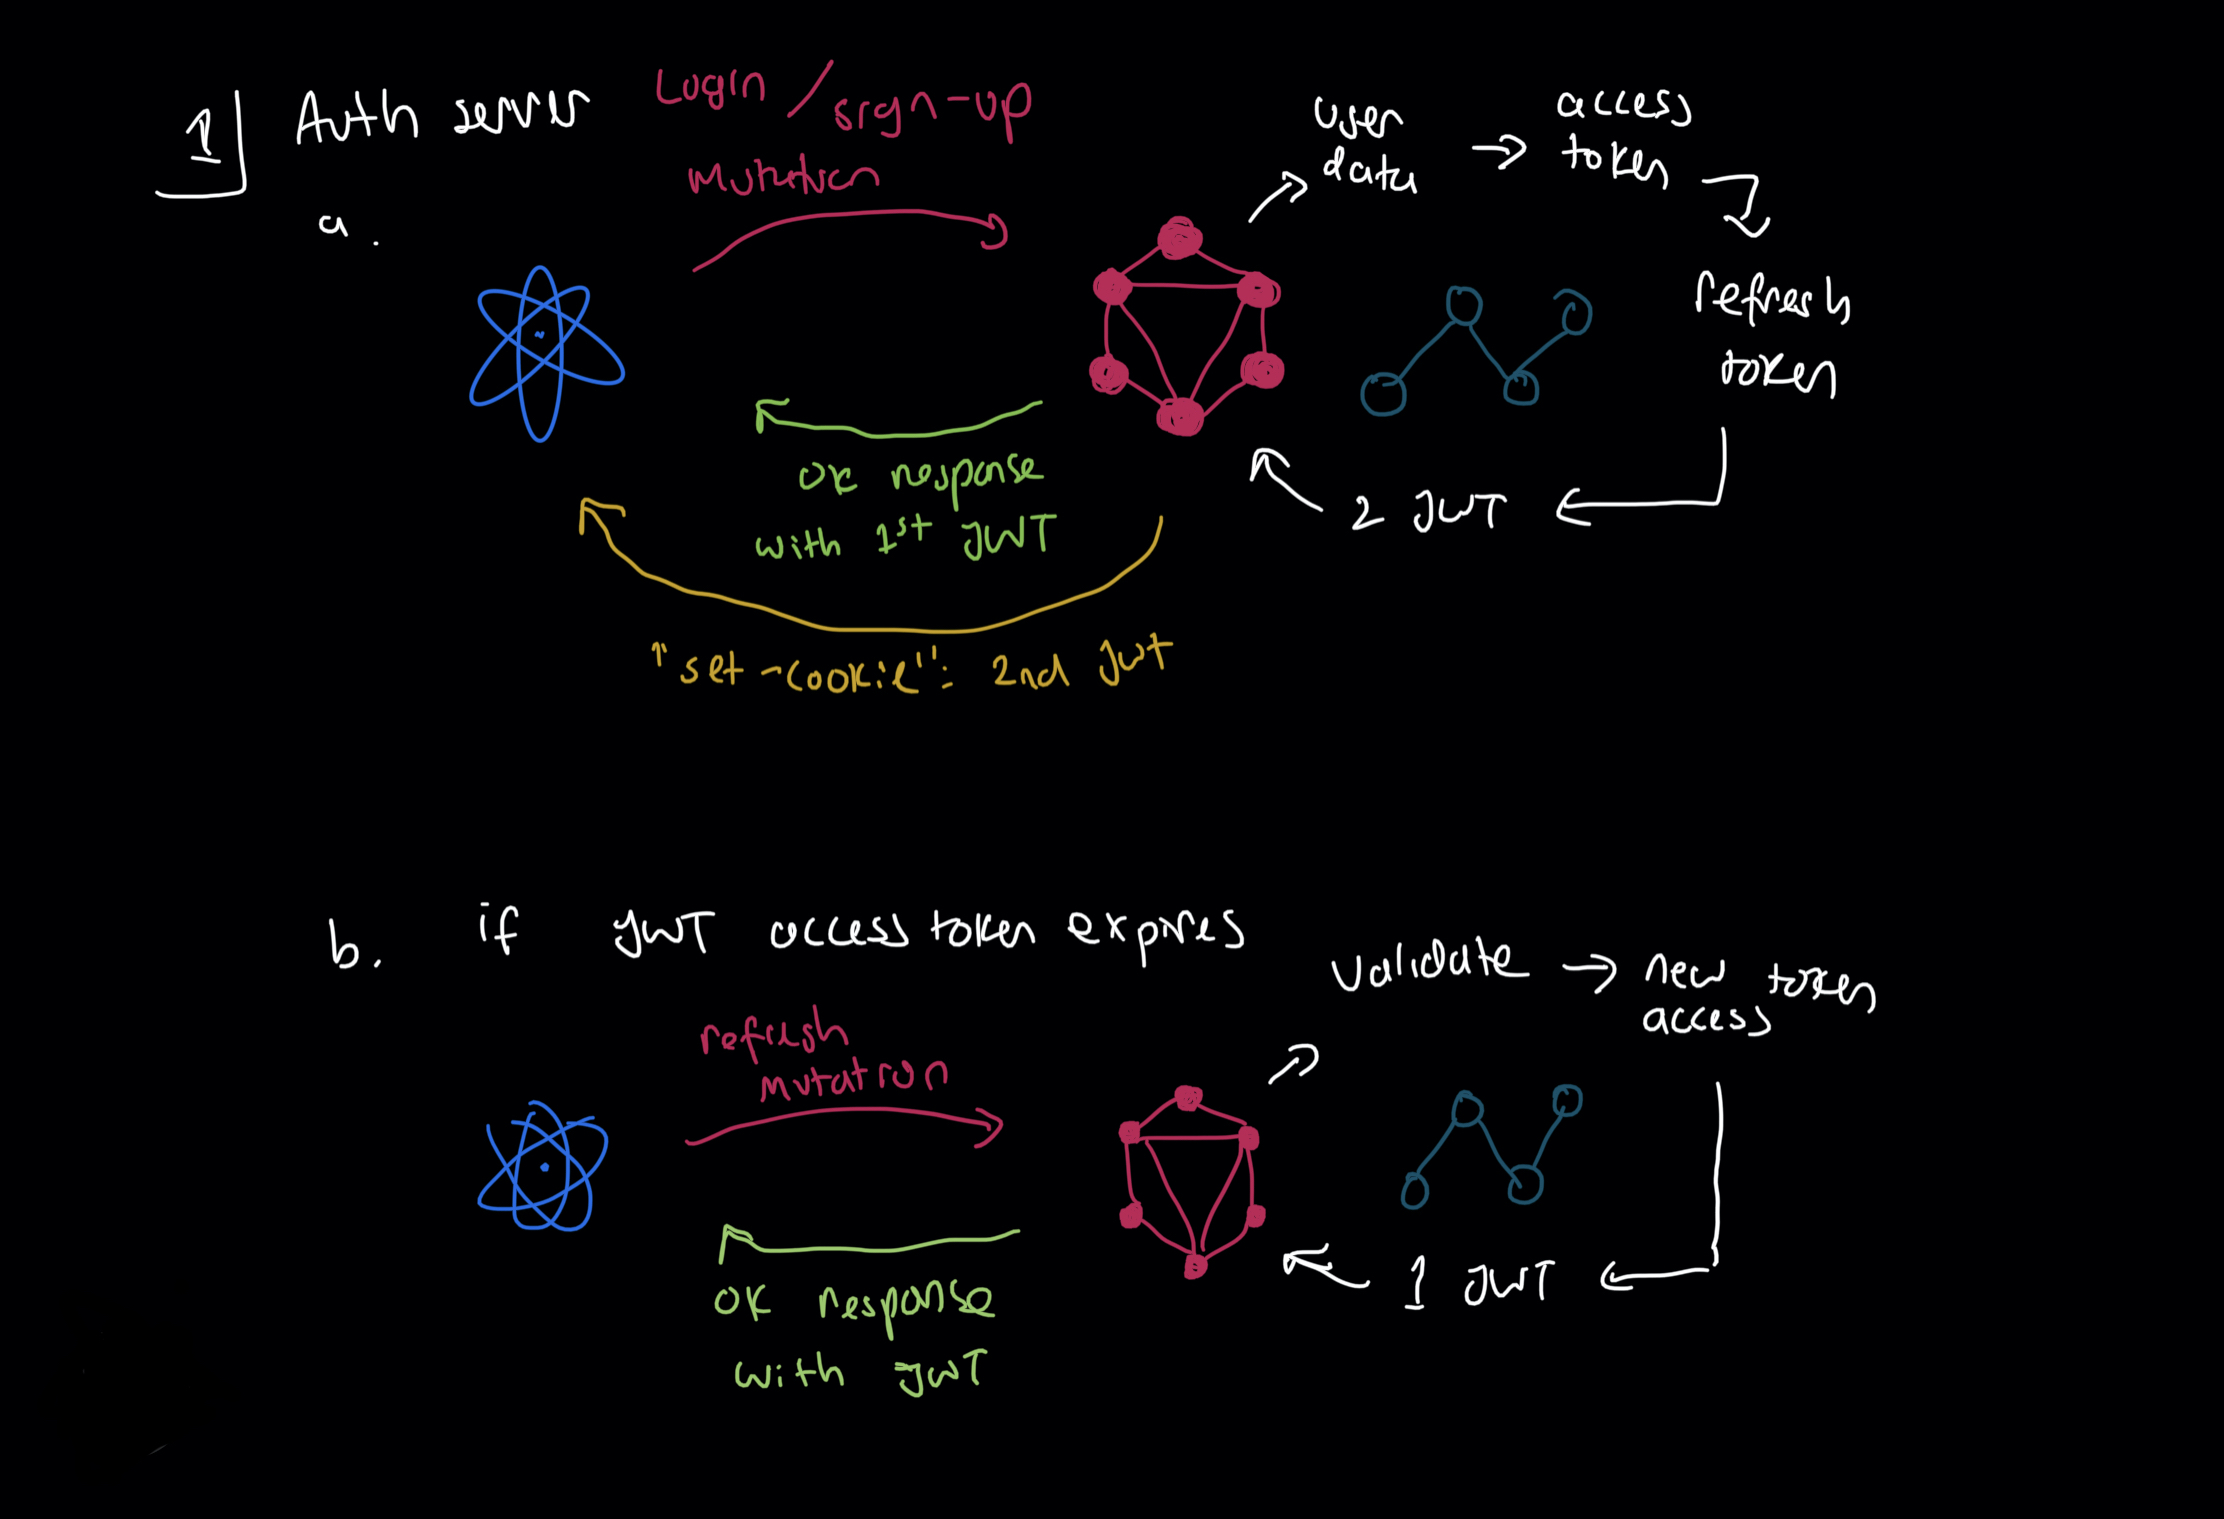 1 Auth server
Login / sign-up
mutation
a.
user
data
access
token
refresh
token
2 JWT
OK response
with 1st JWT
"set-cookie": 2nd jwt
b. if JWT access token expires
refresh
mutation
validate → new token
access
1 JWT
OK response
with JWT